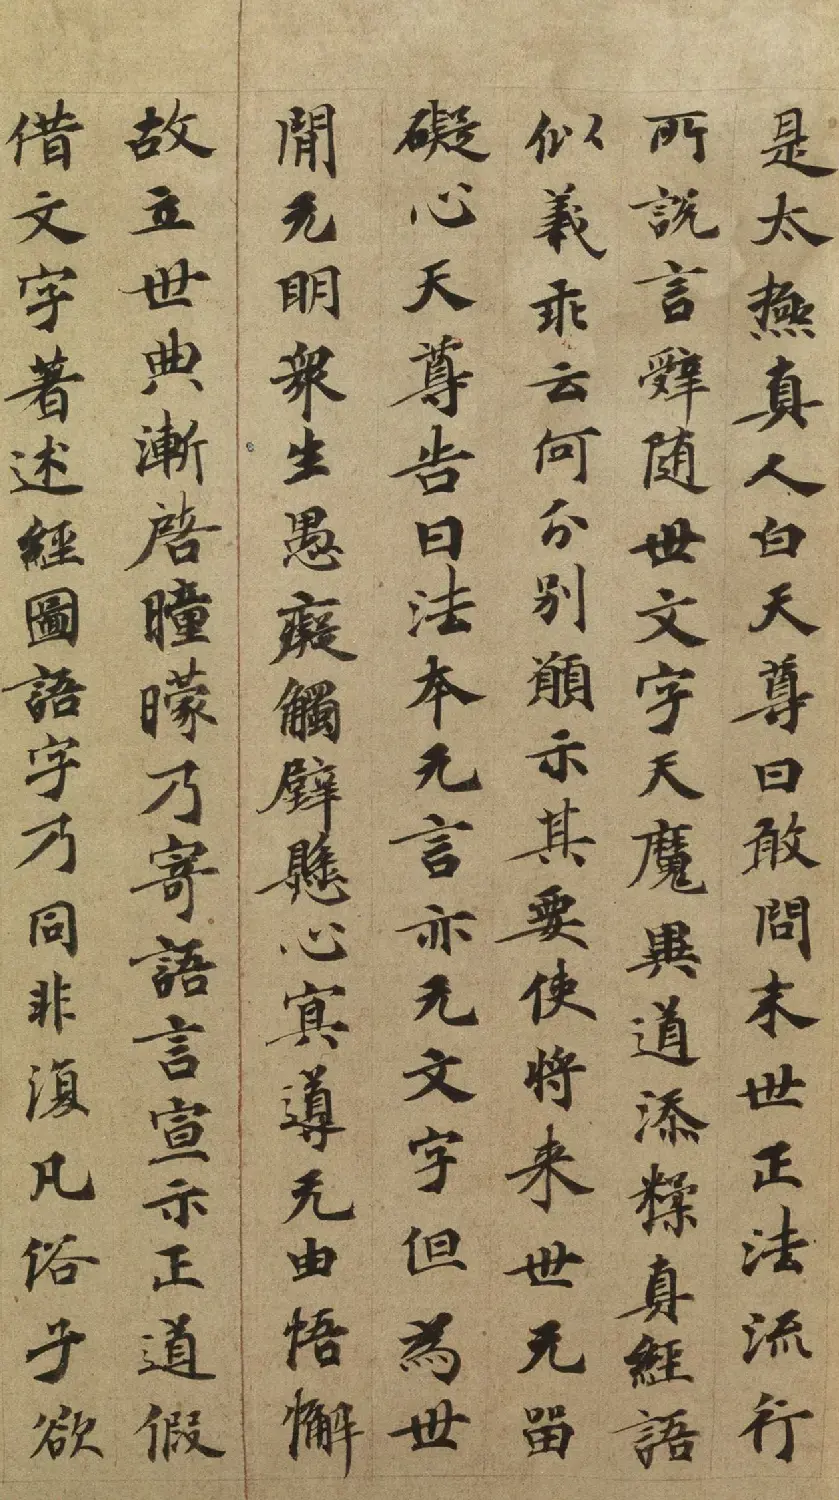 是太極真人白天尊曰敢問末世正法流行
所説言辝随世文字天魔異道添糅真經語
似義乖云何分別願示其要使将来世无留
礙心天尊告曰法本无言亦无文字但為世
閒无明衆生愚癡觸壁懸心寘導无由悟懈
故立世典漸啓瞳矇乃寄語言宣示正道假
借文字著述經圖語字乃同非復凡俗子欲